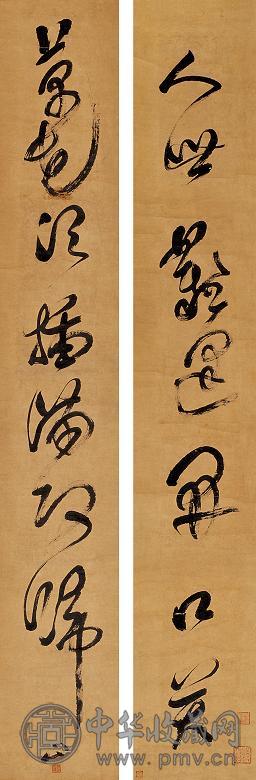 人世難逢開口笑
菊花須插滿頭歸
山
中华收藏网
www.pmv.cn